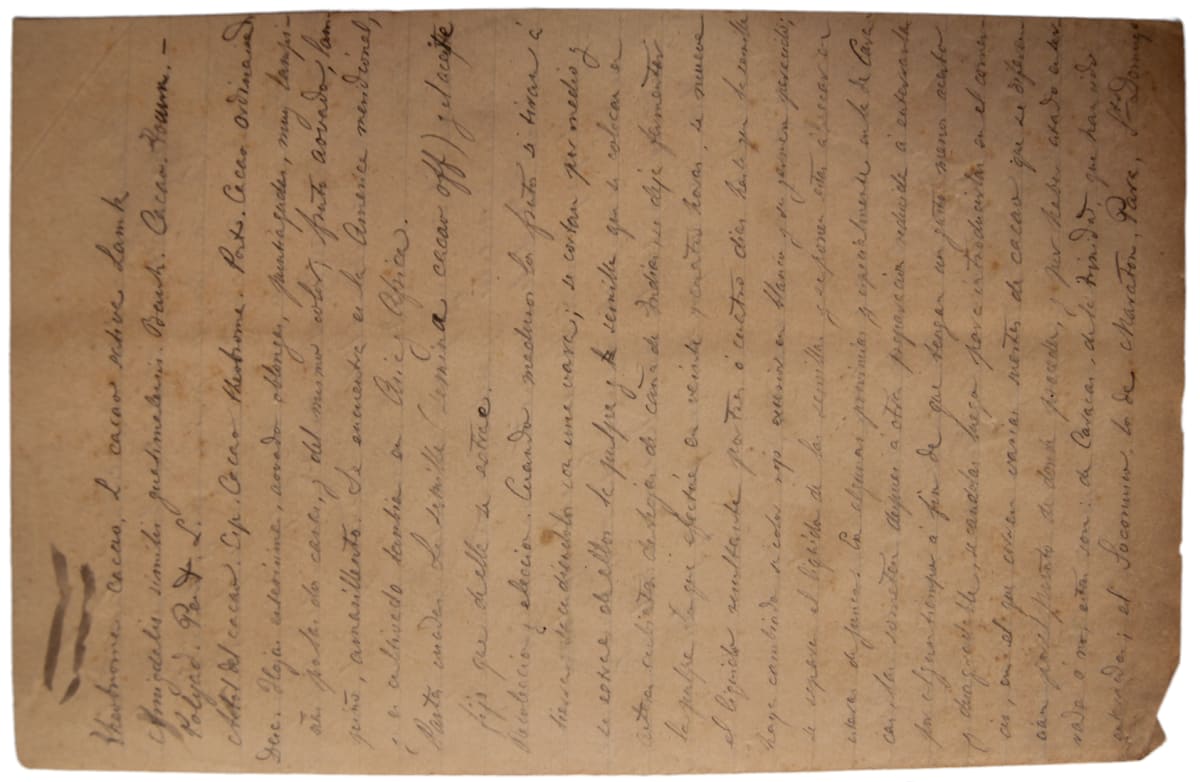 Theobroma cacao, L cacao sative Lamk
Amigdalis similis guatimalensi. Bauh. Cacao. Blumm.—
Polyad. Pent L.
Árbol del cacao. Esp. Cacao Theobrome. Port. Cacao ordinario
Desc. Hojas enterisimas, aovado oblongas, puntiagudas, muy lampi-
ñas por los dos caras, y del mismo color; fruto aovado, lam
piño, amarillento. Se encuentra en la America meridional,
i es cultivado tambien en Asia y Africa.
Parte usada. La semilla (semina cacao off) y el aceite
fijo que de ella se estrae.
Recoleccion y eleccion. Cuando maduros los frutos se tiran á
tierra sacudiendolos con una vara; se cortan por medio y
se estrae de ellos la pulpa y la semilla que se colocan en
artas cubiertas de hojas de caña de Indias; se deja fermentar
la pulpa lo que se efectúa en veinte y cuatro horas; se mueve
el liquido resultante por tres ó cuatro dias hasta que la semilla
haya cambiado su color rojo oscuro en blanco y su germen perecido;
se separa el liquido de la semilla y se ponen esta á secar en
unas de junco. En algunas provincias y especialmente en la de Cara
cas, la someten despues á otra preparacion reducida á enterrarla
por algun tiempo á fin de que tenga un sabor menos acerbo
y desagradable, secandola luego para introducirla en el comer-
cio, en el que existen varias suertes de cacao que se diferen
cian por el punto de donde proceden, y por haber estado enter
rado ó no; estas son: de Caracas, de la Trinidad que han sido
enterrados; el Soconusco lo de Marañon, Para, Sto Domingo